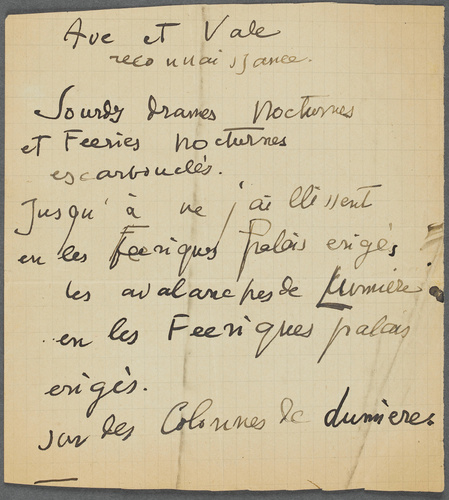 Ave et Vale
reconnaissance.
Sourds drames Nocturnes
et Feeries nocturnes
escarbouclés.
Jusqu'à ne jaillissent
en les Feeriques palais erigés
les avalanches de Lumière
en les Feeriques palais
erigés.
sur des Colonnes de Lumières